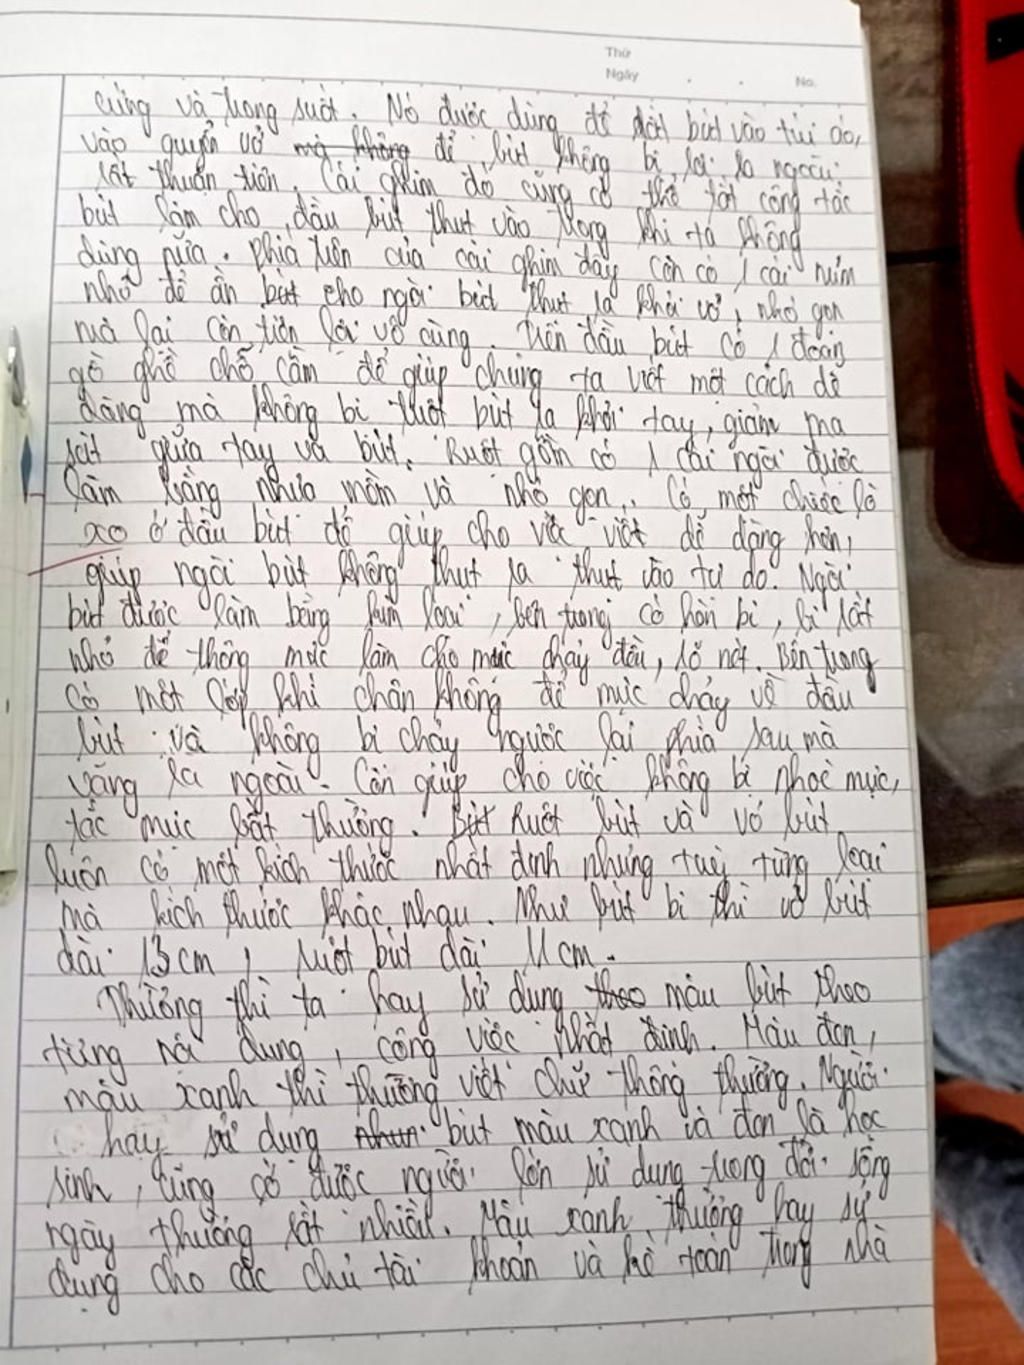 Thứ
Ngày No.
cứng và trong suốt. Nó được dùng để đặt bút vào túi áo,
vào quyển vở mà không để bút không bị rơi ra ngoài
rất thuận tiện. Cái ghim đó cũng có thể tắt công tắc
bút làm cho đầu bút thụt vào trong khi ta không
dùng nữa. Phía trên của cái ghim đấy còn có 1 cái núm
nhỏ để ấn bút cho ngòi bút thụt ra khỏi vỏ, nhỏ gọn
mà lại còn tiện lợi vô cùng. Trên đầu bút có 1 đoạn
gồ ghề chỗ cầm để giúp chúng ta viết một cách dễ
dàng mà không bị tuột bút ra khỏi tay, giảm ma
sát giữa tay và bút. Ruột gồm có 1 cái ngòi được
làm bằng nhựa mềm và nhỏ gọn. Có một chiếc lò
xo ở đầu bút để giúp cho việc viết dễ dàng hơn,
giúp ngòi bút không thụt ra thụt vào tự do. Ngòi
bút được làm bằng kim loại, bên trong có hòn bi, bi rất
nhỏ để thông mực làm cho mực chảy đều, rõ nét. Bên trong
có một lớp khí chân không để mực chảy về đầu
bút và không bị chảy ngược lại phía sau mà
văng ra ngoài. Còn giúp cho việc không bị nhoè mực,
tắc mực bất thường. Bút Ruột bút và vỏ bút
luôn có một kích thước nhất định nhưng tuỳ từng loại
mà kích thước khác nhau. Như bút bi thì vỏ bút
dài 13 cm, ruột bút dài 11 cm.
Thường thì ta hay sử dụng theo màu bút theo
từng nội dung, công việc nhất định. Màu đen,
màu xanh thì thường viết chữ thông thường. Người
hay sử dụng nhưn bút màu xanh và đen là học
sinh, cũng có được người lớn sử dụng trong đời sống
ngày thường rất nhiều. Màu xanh thường hay sử
dụng cho các chủ tài khoản và kế toán trong nhà